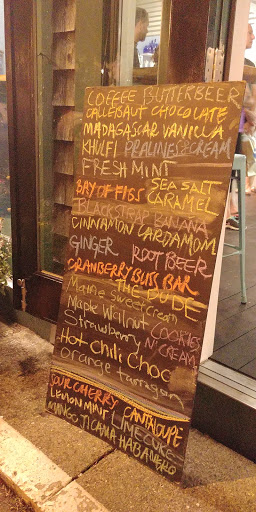 COFFEE BUTTERBEER
CALLEBAUT CHOCOLATE
MADAGASCAR VANILLA
KHULFI PRALINES CREAM
FRESH MINT
BAY OF FIGS SEA SALT CARAMEL
BLACKSTRAP BANANA
CINNAMON CARDAMOM
GINGER ROOT BEER
CRANBERRY BLISS BAR
THE DUDE
Maine Sweet Cream
Maple Walnut
COOKIES N' CREAM
Strawberry
Hot Chili Choc
Orange tarragon
SOUR CHERRY CANTALOUPE
LEMON MINT LIME CUKE
MANGO JICAMA HABANERO